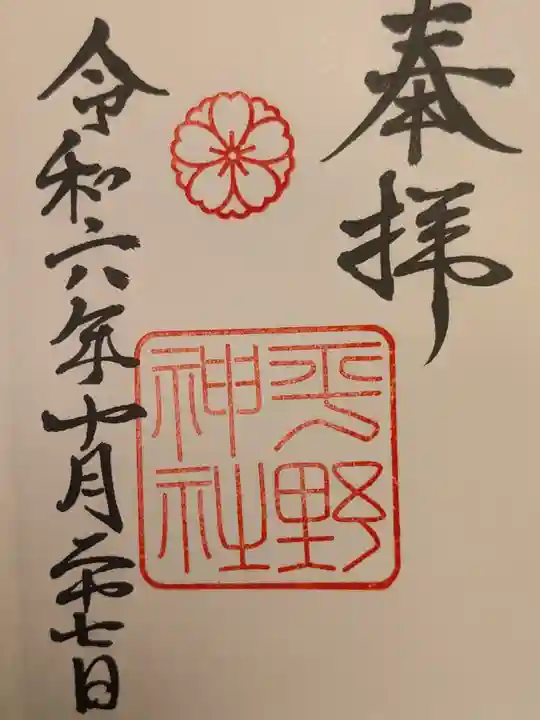 奉拝
平野神社
令和六年十月二十七日